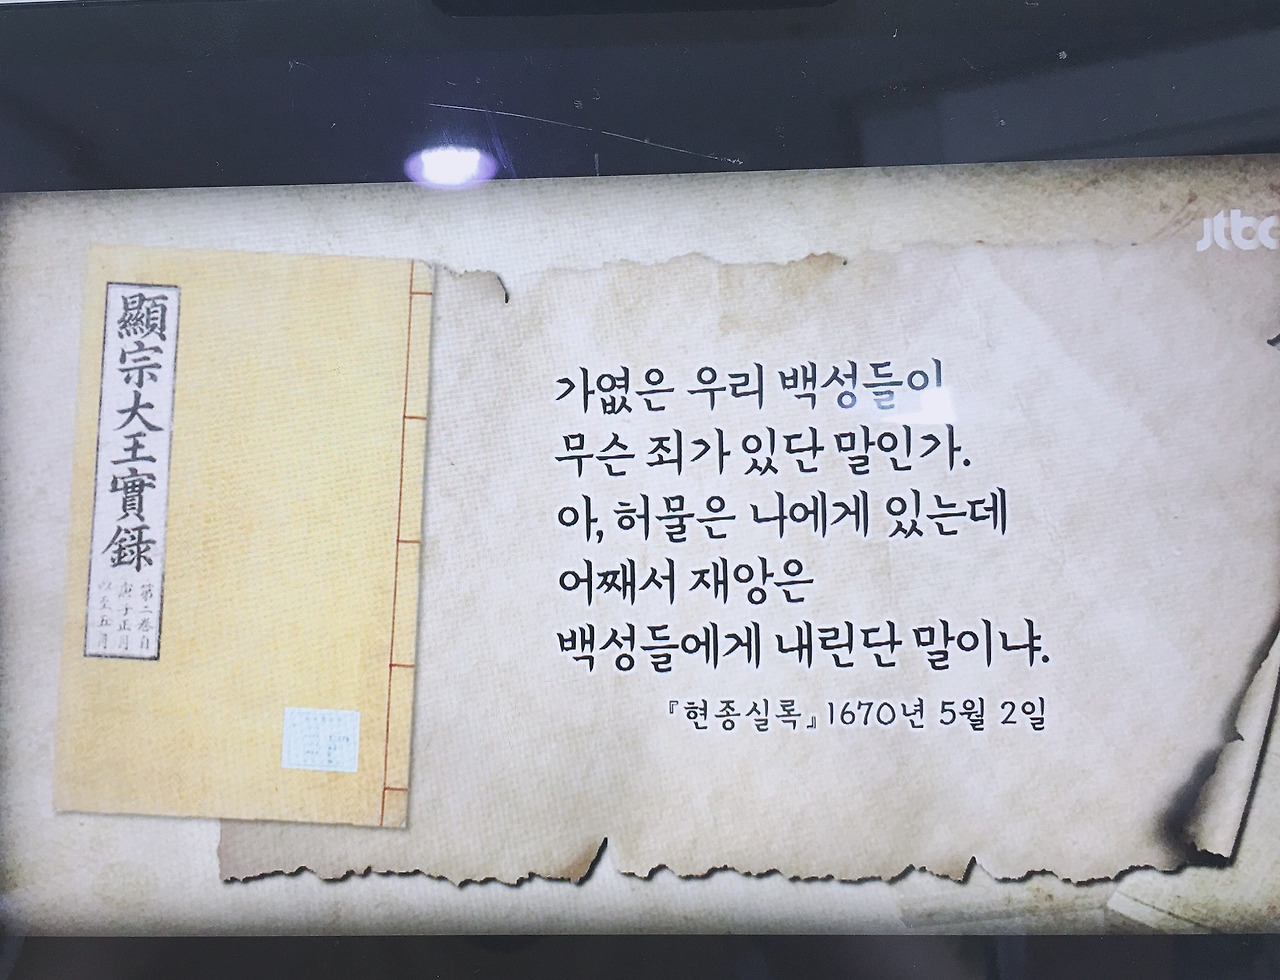 jtbc
顯宗大王實錄
第二卷自
庚子正月
以至五月
가엾은 우리 백성들이
무슨 죄가 있단 말인가.
아, 허물은 나에게 있는데
어째서 재앙은
백성들에게 내린단 말이냐.
『현종실록』 1670년 5월 2일